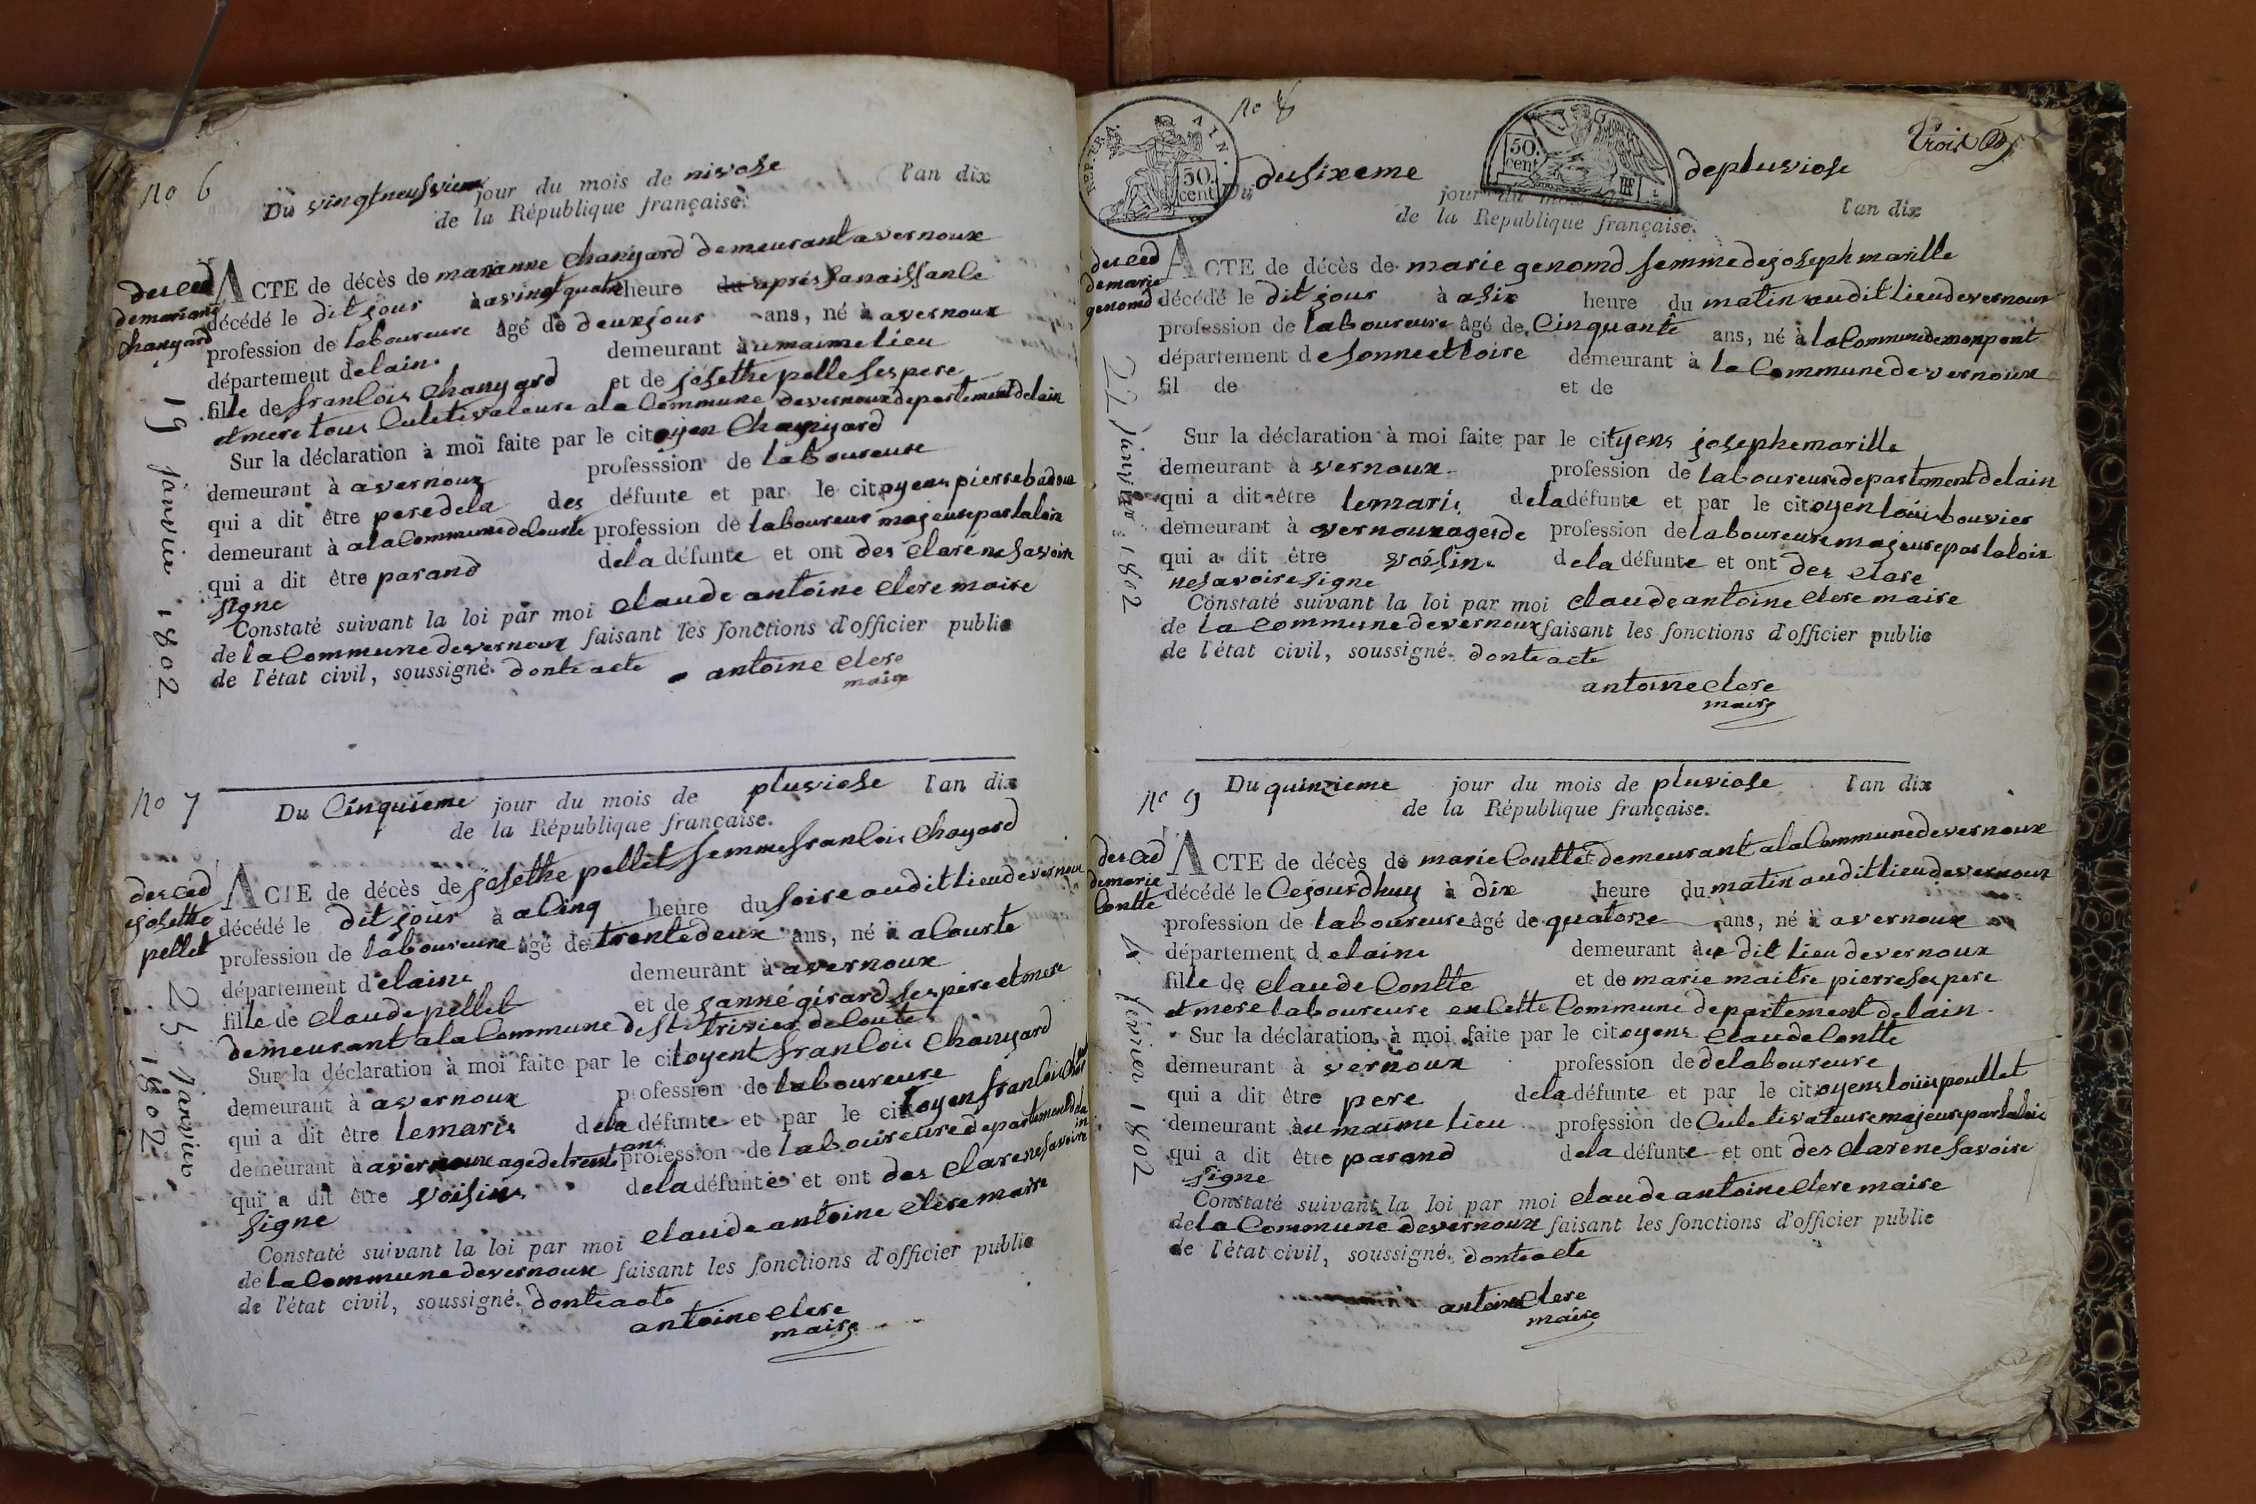 no 6
Du vingtneufvieme jour du mois de nivose l'an dix
de la République française.
deced
de mariane
chanyard
ACTE de décès de marianne chanyard demeurant a vernoux
décédé le dit jour à a vingt quatre heure du après sa naissance
profession de laboureure âgé de deux jour ans, né à a vernoux
département delain. demeurant à u maime lieu
fille de francois chanyard et de josethe pelle ses pere
et mere tous culetivateure a la commune de vernoux departement delain
Sur la déclaration à moi faite par le citoyen chanyard
demeurant à a vernoux professsion de laboureure
qui a dit être pere dela des défunte et par le citoyens pierre badoux
demeurant à a la commune de Courte profession de laboureur majeure par la loin
qui a dit être parand dela défunte et ont des clare ne savoir
signe
Constaté suivant la loi par moi claude antoine clere maire
de la commune de vernoux faisant les fonctions d'officier public
de l'état civil, soussigné. dont acte antoine clere
maire
19 janvier 1802
no 7
Du Cinquieme jour du mois de pluviose l'an dix
de la République française.
deced
josette
pellet
ACTE de décès de josethe pellet femme francois chayard
décédé le dit jour à a cinq heure du soire audit lieu de vernoux
profession de laboureure âgé de trente deux ans, né à a Courte
département d'elaine demeurant à a vernoux
fille de claude pellet et de janne girard ses père et mere
demeurant a la commune de St trivier de Coute
Sur la déclaration à moi faite par le citoyent francois chanyard
demeurant à a vernoux profession de laboureure
qui a dit être le marie dela défunte et par le citoyen francois
demeurant à a vernoux age de trent ans profession de laboureure departement dela
in
qui a dit être voisin dela défunte et ont des clare ne savoire
signe
Constaté suivant la loi par moi claude antoine clere maire
de la commune de vernoux faisant les fonctions d'officier public
de l'état civil, soussigné. dont acte
antoine clere
maire
25 janvier 1802
no 8
DEP. TER. AIN.
50.
cent
50.
cent
trois
Du du sixeme jour du mois de pluviose l'an dix
de la République française.
deced
de marie
genomd
ACTE de décès de marie genomd femme de joseph marille
décédé le dit jour à a six heure du matin audit lieu de vernoux
profession de laboureure âgé de Cinquante ans, né à la commune de monpont
département de sonne et loire demeurant à la commune de vernoux
fil de et de
Sur la déclaration à moi faite par le cityens josephe marille
demeurant à vernoux. profession de laboureure departement delain
qui a dit être le marie dela défunte et par le citoyen louis bouvier
demeurant à vernoux ages de profession de laboureure majeure par la loin
qui a dit être voisin dela défunte et ont des clare
ne savoire signe
Constaté suivant la loi par moi claude antoine clere maire
de la commune de vernoux faisant les fonctions d'officier public
de l'état civil, soussigné. dont acte
antoine clere
maire
22 janvier 1802
no 9
Du quinzieme jour du mois de pluviose l'an dix
de la République française.
deced
de marie
Contte
ACTE de décès de marie Conttet demeurant a la commune de vernoux
décédé le Cejourdhuy à dix heure du matin audit lieu de vernoux
profession de laboureure âgé de quatorze ans, né à a vernoux
département delaine demeurant à u dit lieu de vernoux
fille de claude Contte et de marie maitre pierre ses pere
et mere laboureure en Cette Commune departement delain
Sur la déclaration à moi faite par le citoyens claude Contte
demeurant à vernoux profession de delaboureure
qui a dit être pere dela défunte et par le citoyens louis poullet
demeurant à u maime lieu profession de Culetivateure majeure par la loi
qui a dit être parand dela défunte et ont des clare ne savoire
signe
Constaté suivant la loi par moi claude antoine clere maire
de la commune de vernoux faisant les fonctions d'officier public
de l'état civil, soussigné. dont acte
antoine clere
maire
4 février 1802